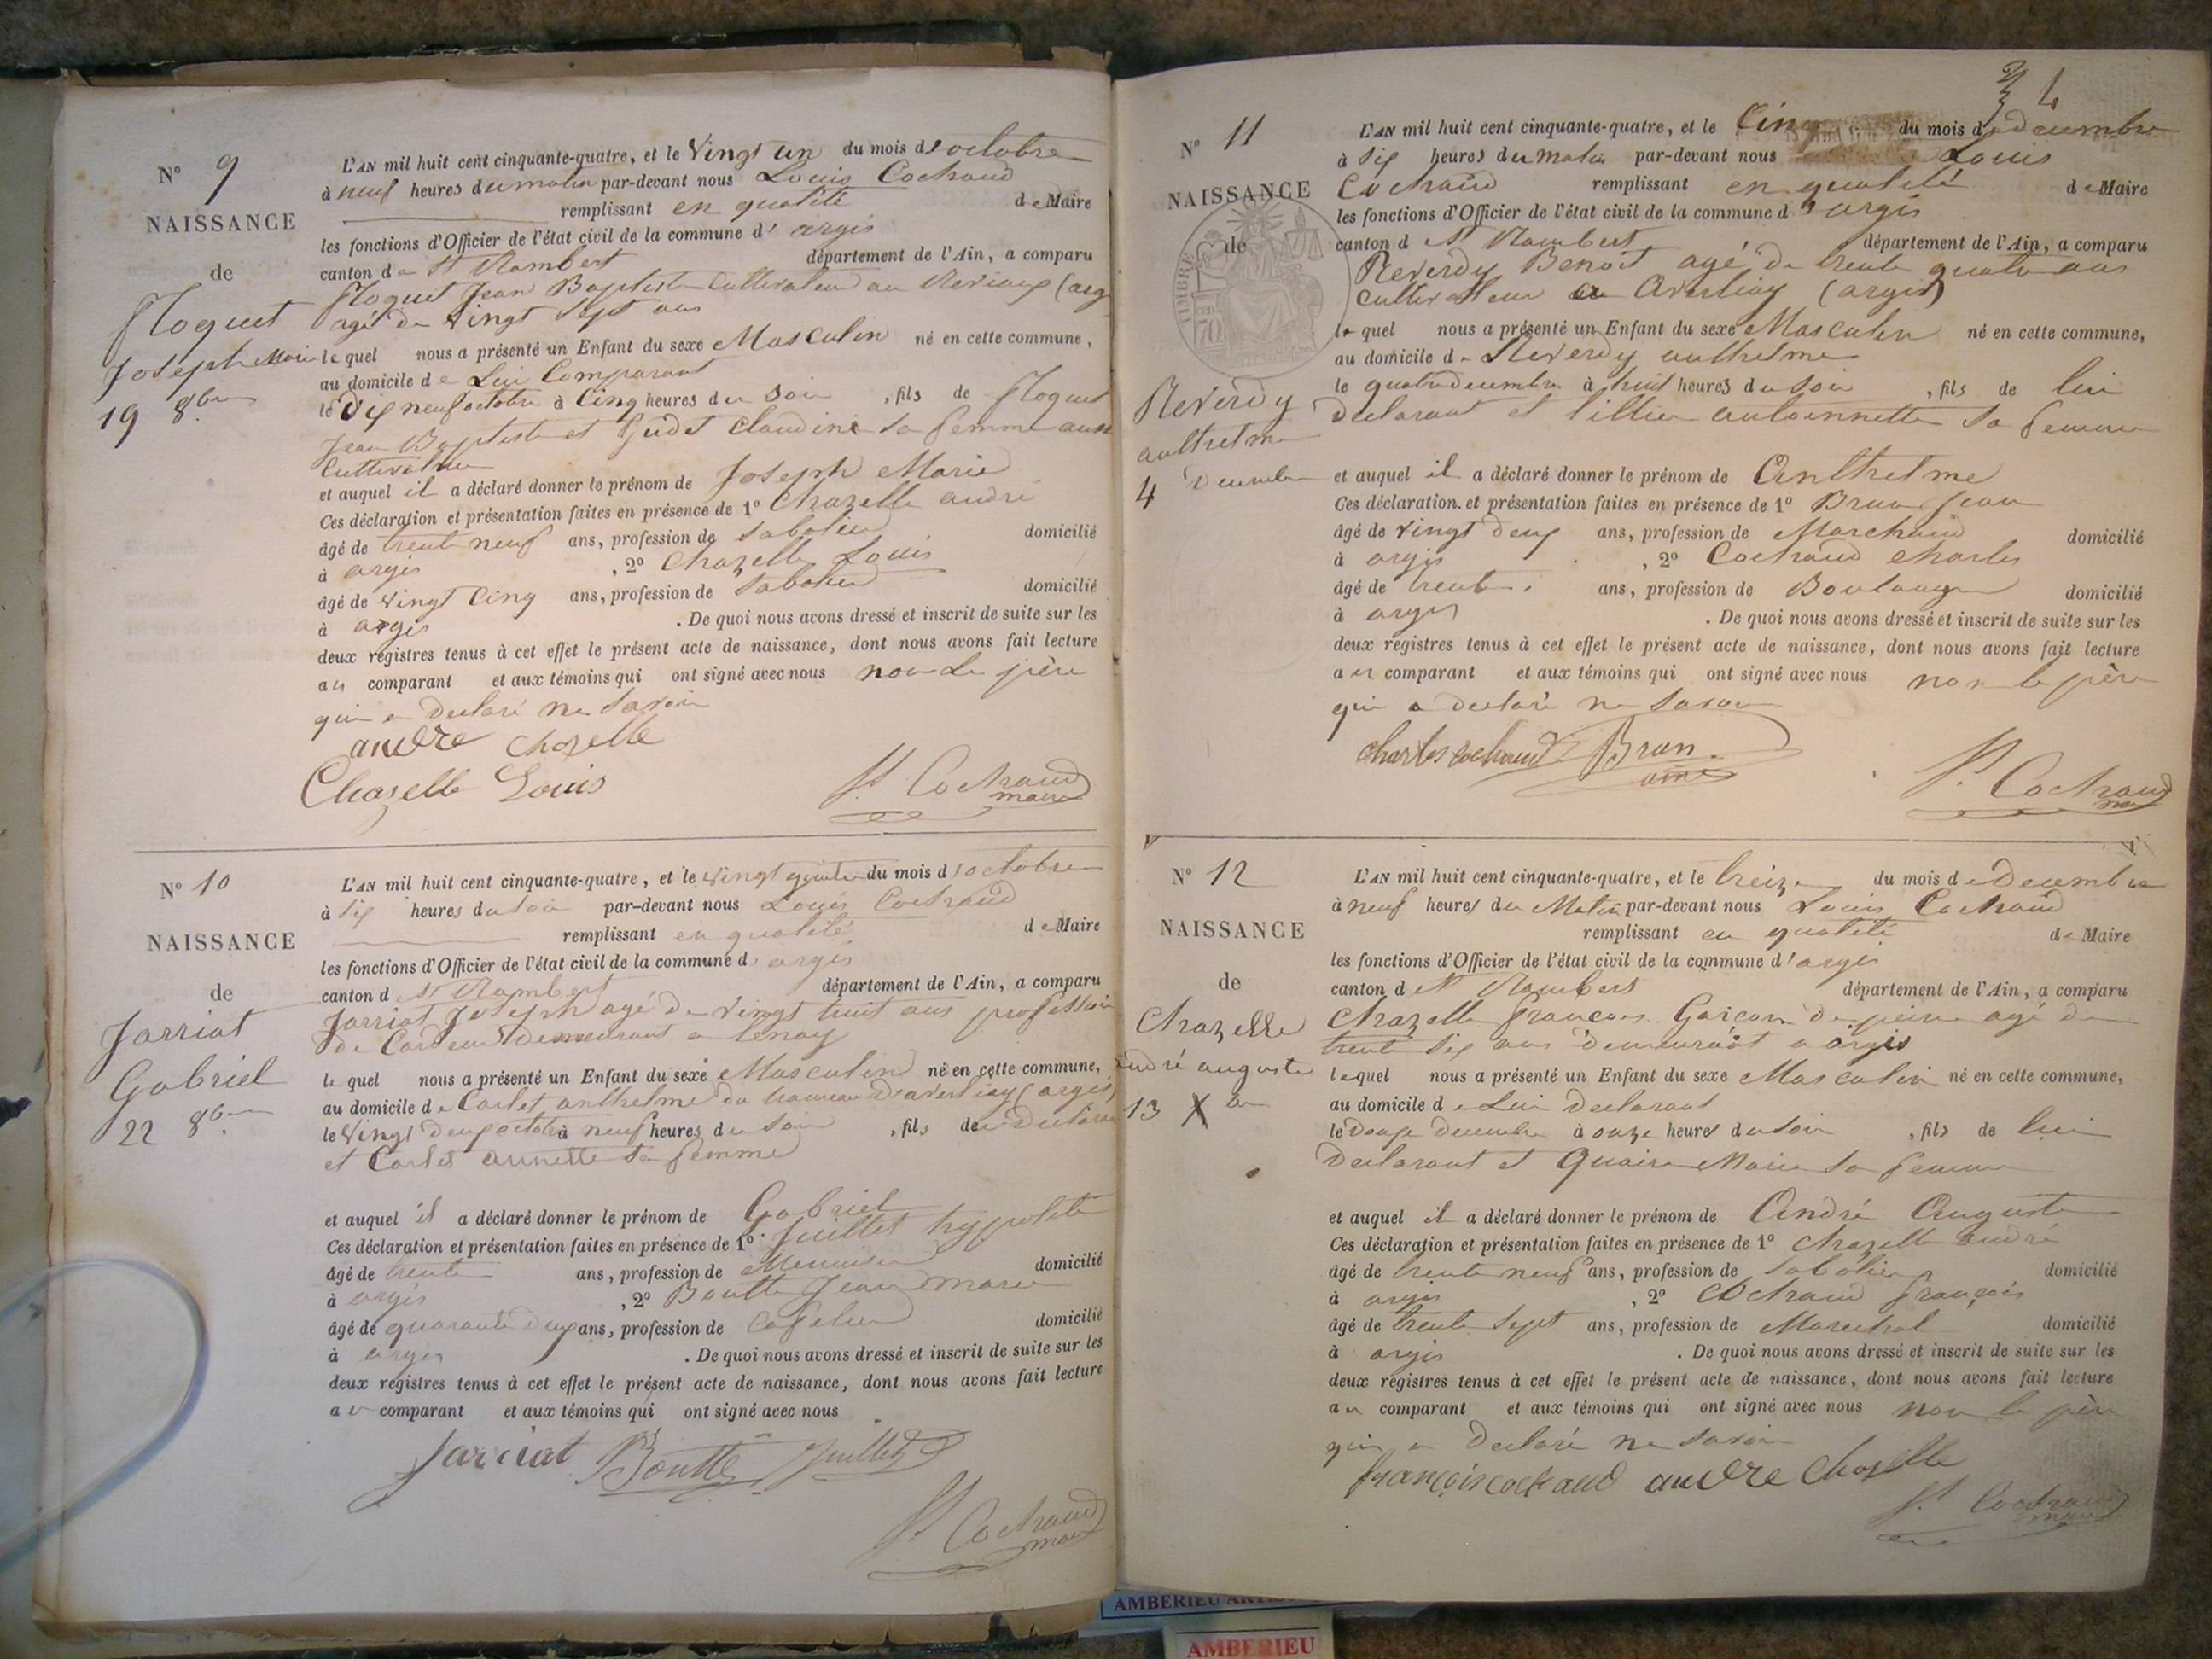 N° 9
NAISSANCE
de
Floquet
Joseph Marie
19 8bre
L'AN mil huit cent cinquante-quatre, et le Vingt un du mois d'octobre
à neuf heures du matin par-devant nous Louis Cochaud
remplissant en qualité de Maire
les fonctions d'Officier de l'état civil de la commune d'argis
canton de St Rambert département de l'Ain, a comparu
Floquet Jean Baptiste Cultivateur au (arg
agé de Vingt Sept ans
lequel nous a présenté un Enfant du sexe Masculin né en cette commune,
au domicile de Lui Comparant
le Dix neuf octobre à Cinq heures du Soir, fils de Floquet
Jean Baptiste et Gudet Claudine sa femme aussi
Cultivatrice
et auquel il a déclaré donner le prénom de Joseph Marie
Ces déclaration et présentation faites en présence de 1° Chazelle andré
âgé de trente neuf ans, profession de Sabotier domicilié
à argis, 2° Chazelle Louis
âgé de vingt Cinq ans, profession de Sabotier domicilié
à argis. De quoi nous avons dressé et inscrit de suite sur les
deux registres tenus à cet effet le présent acte de naissance, dont nous avons fait lecture
au comparant et aux témoins qui ont signé avec nous non le père
qui a declaré ne Savoir
andre Chazelle
Chazelle Louis
Ls Cochaud
maire
N° 10
NAISSANCE
de
Jarriat
Gabriel
22 8bre
L'AN mil huit cent cinquante-quatre, et le vingt quatre du mois d'octobre
à Six heures du Soir par-devant nous Louis Cochaud
remplissant en qualité de Maire
les fonctions d'Officier de l'état civil de la commune d'argis
canton de St Rambert département de l'Ain, a comparu
Jarriat Joseph agé de Vingt huit ans profession
de Cardeur Demeurant a tenay
lequel nous a présenté un Enfant du sexe Masculin né en cette commune,
au domicile de Carlet anthelme du hameau D'averliay (argis)
le Vingt Deux octobre à neuf heures du Soir, fils de Declarant
et Carlet annette Sa femme
et auquel il a déclaré donner le prénom de Gabriel
Ces déclaration et présentation faites en présence de 1° Juillet hypolite
âgé de trente ans, profession de Menuisier domicilié
à argis, 2° Boutte Jean Marie
âgé de quarante Deux ans, profession de Cafetier domicilié
à argis. De quoi nous avons dressé et inscrit de suite sur les
deux registres tenus à cet effet le présent acte de naissance, dont nous avons fait lecture
au comparant et aux témoins qui ont signé avec nous
Jarriat Boutte Juillet
Ls Cochaud
maire
N° 11
NAISSANCE
de
TIMBRE
70
Reverdy
anthelme
4 Decembre
L'AN mil huit cent cinquante-quatre, et le Cinq du mois de decembre
à Six heures du matin par-devant nous Louis
Cochaud remplissant en qualité de Maire
les fonctions d'Officier de l'état civil de la commune d'argis
canton d St Rambert département de l'Ain, a comparu
Reverdy Benoit agé de trente quatre ans
Cultivateur a Averliay (argis)
lequel nous a présenté un Enfant du sexe Masculin né en cette commune,
au domicile de Reverdy anthelme
le quatre decembre à huit heures du Soir, fils de lui
Declarant et tillier antoinnette Sa femme
et auquel il a déclaré donner le prénom de Anthelme
Ces déclaration et présentation faites en présence de 1° Brun Jean
âgé de vingt deux ans, profession de Marchand domicilié
à argis, 2° Cochaud Charles
âgé de trente ans, profession de Boulanger domicilié
à argis. De quoi nous avons dressé et inscrit de suite sur les
deux registres tenus à cet effet le présent acte de naissance, dont nous avons fait lecture
au comparant et aux témoins qui ont signé avec nous non le père
qui a declaré ne Savoir
charles cochaud Brun
aine
Ls Cochaud
N° 12
NAISSANCE
de
Chazelle
André auguste
13 Xbre
L'AN mil huit cent cinquante-quatre, et le treize du mois de Decembre
à neuf heures du Matin par-devant nous Louis Cochaud
remplissant en qualité de Maire
les fonctions d'Officier de l'état civil de la commune d'argis
canton d St Rambert département de l'Ain, a comparu
Chazelle francois Garçon de peine agé de
trente Six ans Demeurant a argis
lequel nous a présenté un Enfant du sexe Masculin né en cette commune,
au domicile de Lui Declarant
le Douze decembre à onze heures du Soir, fils de lui
Declarant et Quaire Marie Sa femme
et auquel il a déclaré donner le prénom de André Auguste
Ces déclaration et présentation faites en présence de 1° Chazelle andré
âgé de trente neuf ans, profession de Sabotier domicilié
à argis, 2° Cochaud françois
âgé de trente Sept ans, profession de Marechal domicilié
à argis. De quoi nous avons dressé et inscrit de suite sur les
deux registres tenus à cet effet le présent acte de naissance, dont nous avons fait lecture
au comparant et aux témoins qui ont signé avec nous non le père
qui a Declaré ne Savoir
françois cochaud andre Chazelle
Ls Cochaud
maire
AMBERIEU
AMBERIEU